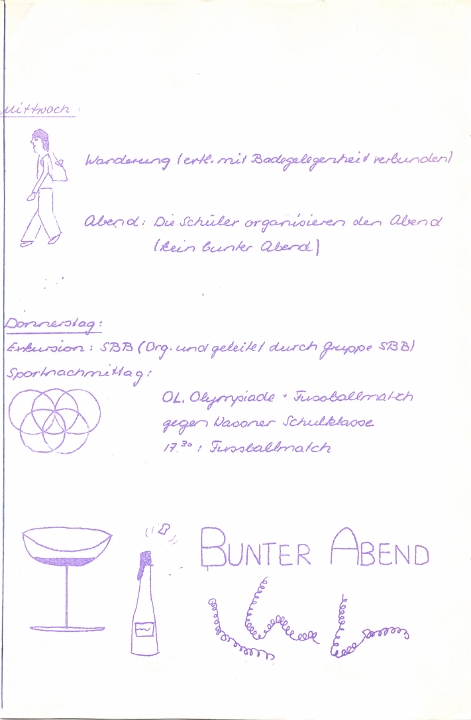 Mittwoch:
Wanderung (evtl. mit Badegelegenheit verbunden)
Abend: Die Schüler organisieren den Abend
(kein bunter Abend)
Donnerstag:
Exkursion: SBB (Org. und geleitet durch Gruppe SBB)
Sportnachmittag:
OL, Olympiade + Fussballmatch
gegen Wasoner Schulklasse
17.30: Fussballmatch
BUNTER ABEND